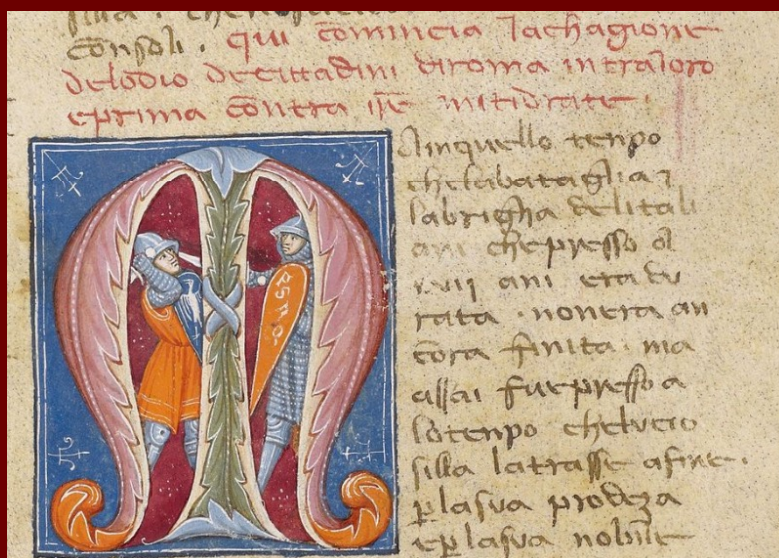 silla . che
consoli . qui comincia lachagione
delodio decittadini diroma intraloro
eprima contra ilre mitidrate .
Ainquello tenpo
chelabataglia 7
labrigha delitali
ani chepresso di
xvij ani eradu
rata . nonera an
cora finita . ma
assai fuepresso a
lotenpo chelucio
silla latrasse afine .
plasua prodeza
eplasua nobile